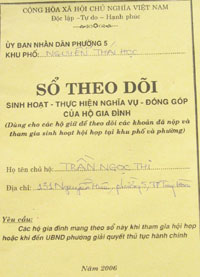 CỘNG HÒA XÃ HỘI CHỦ NGHĨA VIỆT NAM
Độc lập - Tự do - Hạnh phúc
ỦY BAN NHÂN DÂN PHƯỜNG 5
KHU PHỐ: NGUYỄN THÁI HỌC
SỔ THEO DÕI
SINH HOẠT - THỰC HIỆN NGHĨA VỤ - ĐÓNG GÓP
CỦA HỘ GIA ĐÌNH
(Dùng cho các hộ giữ để theo dõi các khoản đã nộp và
tham gia sinh hoạt hội họp tại khu phố và phường)
Họ tên chủ hộ: TRẦN NGỌC THI
Địa chỉ: 151 Nguyễn phường 5, TP Tuy Hòa
Yêu cầu:
Các hộ gia đình mang theo sổ này khi tham gia hội họp
hoặc khi đến UBND phường giải quyết thủ tục hành chính
Năm 2006